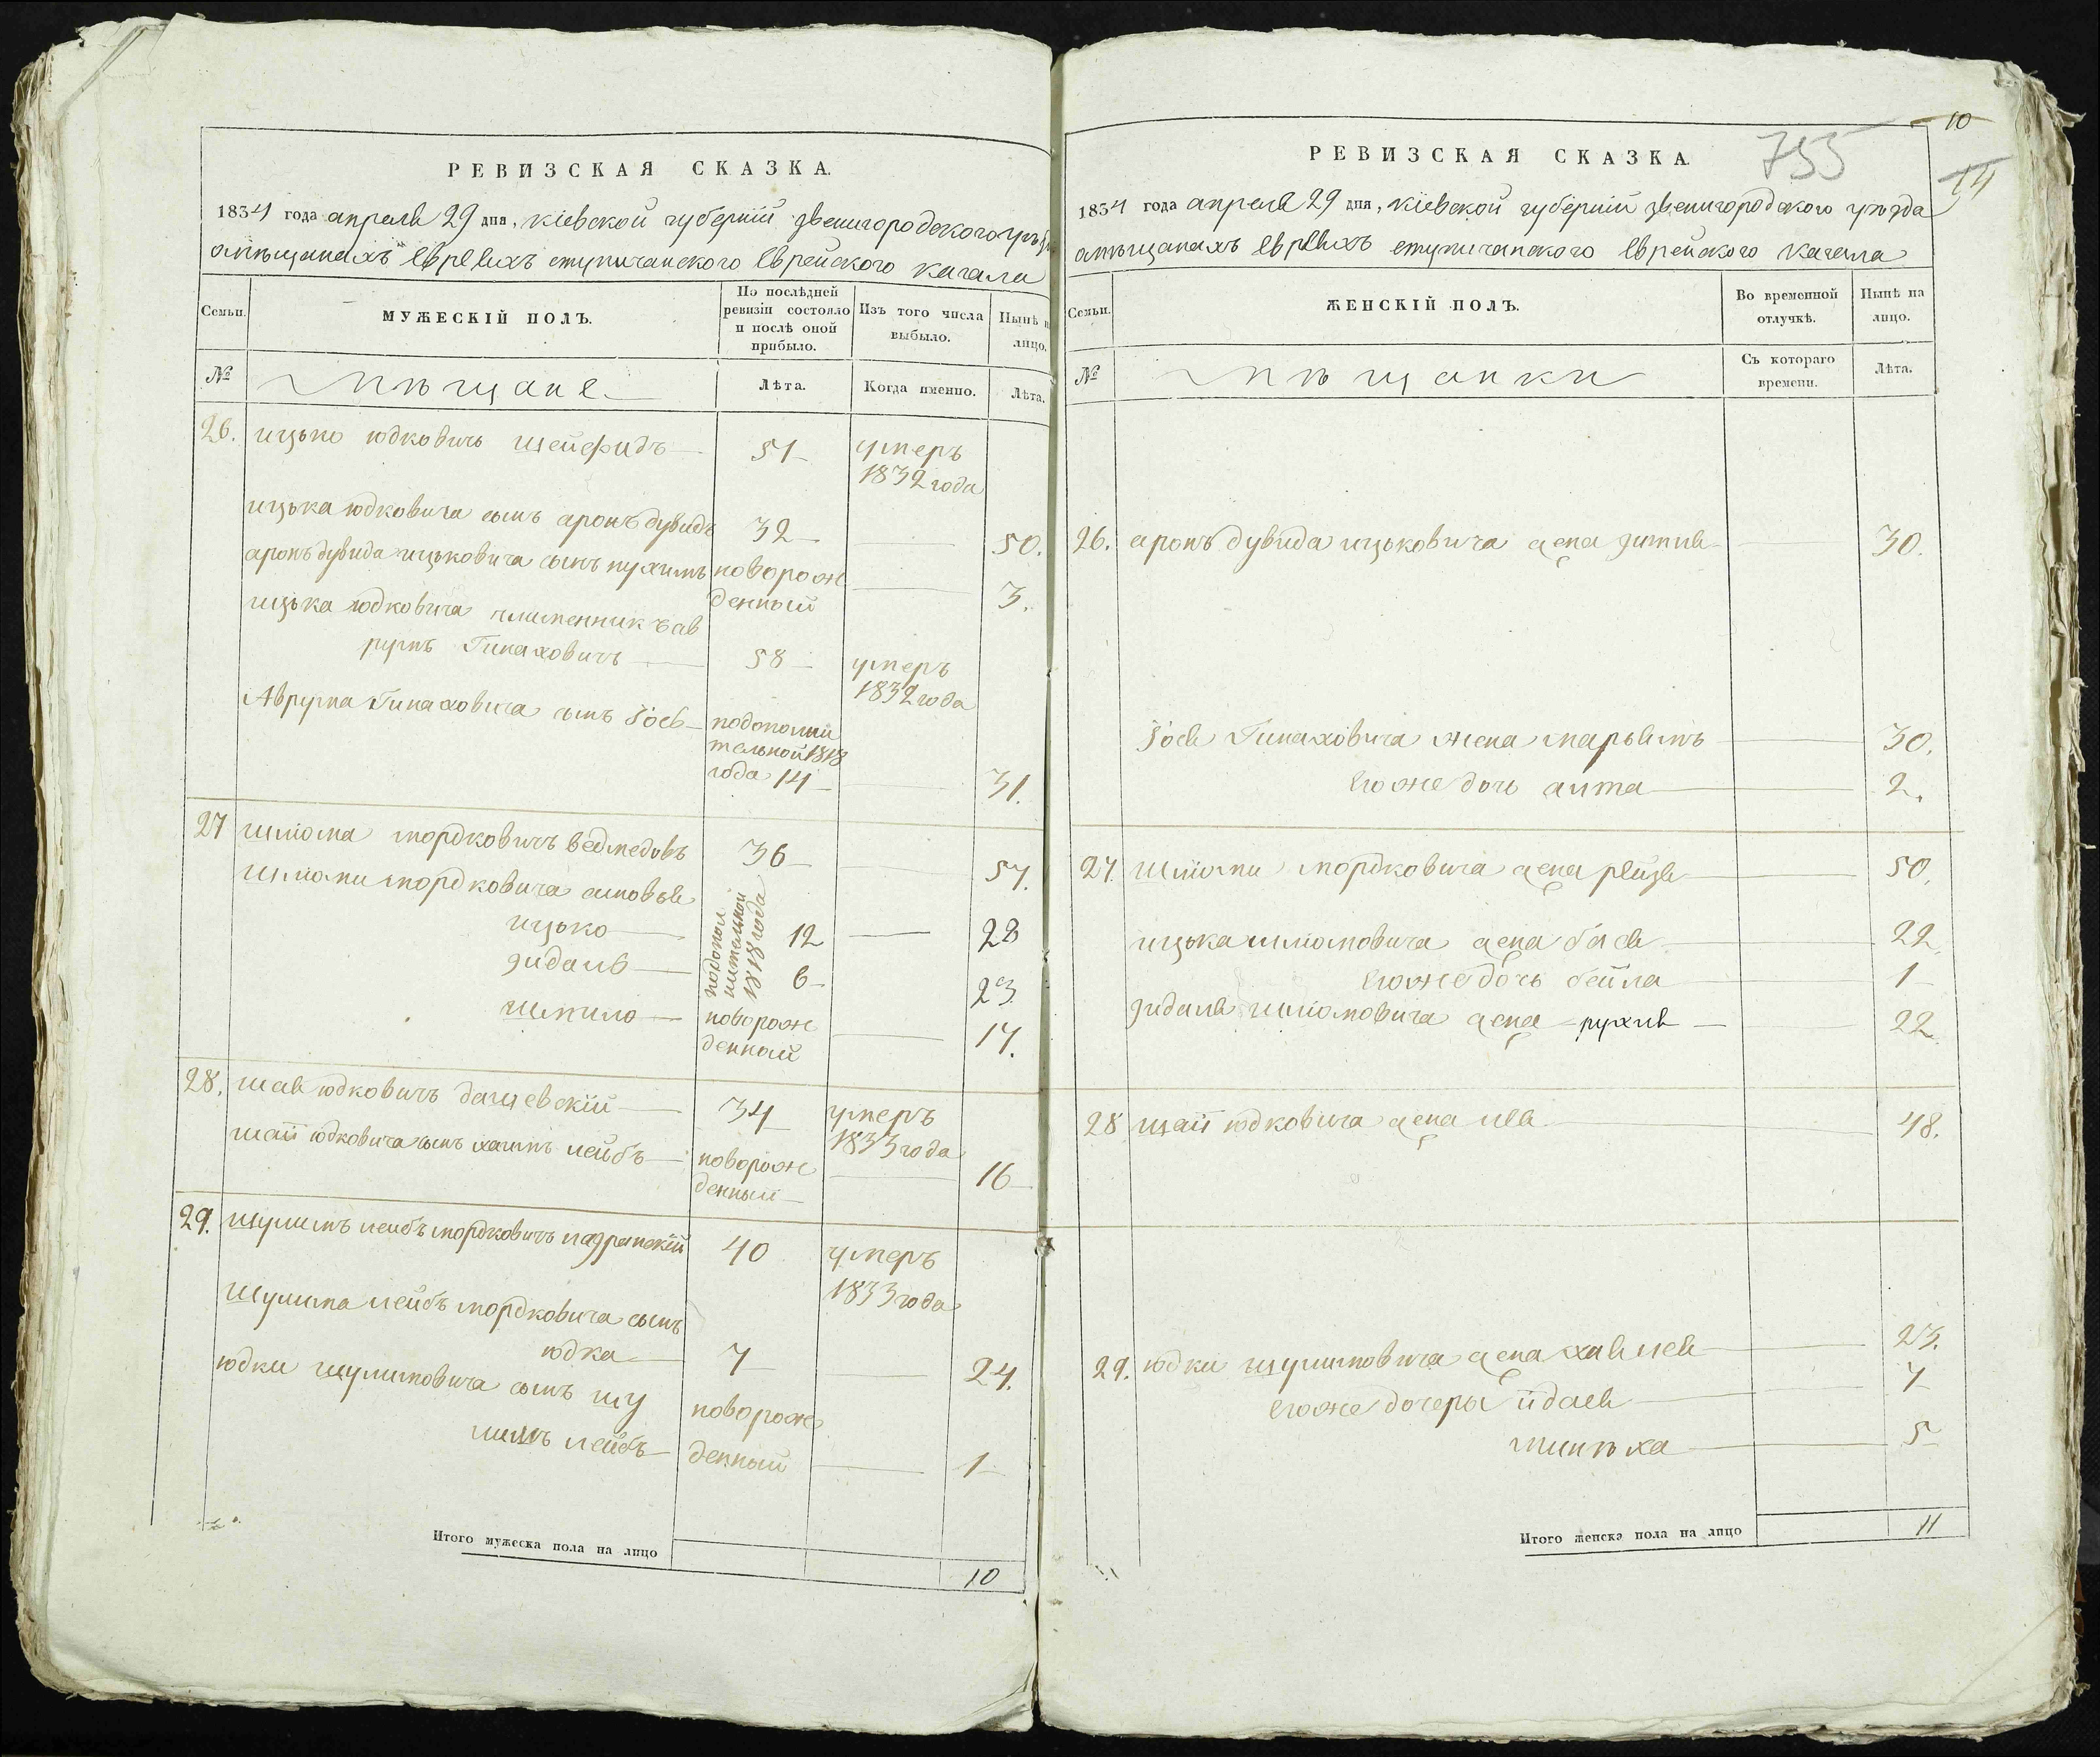 РЕВИЗСКАЯ СКАЗКА.
1834 года апреля 29 дня, кіевской губерніи звенигородского
омѣщанахъ евреяхъ Кагала
Семьи.
МУЖЕСКІЙ ПОЛЪ.
По послѣдней ревизіи состояло и послѣ оной прибыло.
Изъ того числа выбыло.
Нынѣ на лицо.
№
мѣщане
Лѣта.
Когда именно.
Лѣта.
26. ицько юдковичь 51 умеръ 1832 года
ицька юдковича сынъ аронъ дувидъ 32 50.
аронъ дувида ицьковича сынъ нухимъ новорож денный 3.
ицька юдковича племенникъ ав
румъ Гинаховичъ 58 умеръ 1832 года
Аврума Гинаховича сынъ Іось подополни тельной 1818 года 14 31.
27 шліома мордковичъ ведмедовъ 36 54.
шліоми мордковича сыновья
ицько подополнительной 1818 года 12 28
зидаль 6 23
шмило новорож денный 17.
28. шая юдковичъ дашевскій 34 умеръ 1833 года
шаи юдковича сынъ хаимъ лейбъ новорож денный 16
29. шулимъ лейбъ мордковичъ 40 умеръ 1833 года
шулима лейбъ мордковича сынъ
юдка 7 24.
юдки шулимовича сынъ шу
лимъ лейбъ новорож денный 1
Итого мужеска пола на лицо 10
10
755
14
РЕВИЗСКАЯ СКАЗКА.
1834 года апреля 29 дня, кіевской губерніи звенигородского уѣзда
омѣщанахъ евреяхъ еврейского Кагала
Семьи.
ЖЕНСКІЙ ПОЛЪ.
Во временной отлучкѣ.
Нынѣ на лицо.
№
мѣщанки
Съ котораго времени.
Лѣта.
26. аронъ дувида ицьковича жена 30.
Іося Гинаховича жена марьямъ 30.
егоже дочь 2.
27. шліоми мордковича жена рейзя 50.
ицька шліомовича жена бася 22
егоже дочь бейла 1
зидаля шліомовича жена рухля 22
28 шаи юдковича жена лея 48.
29. юдки шулимовича жена хая лея 23.
егоже дочеры 7
5
Итого женска пола на лицо 11